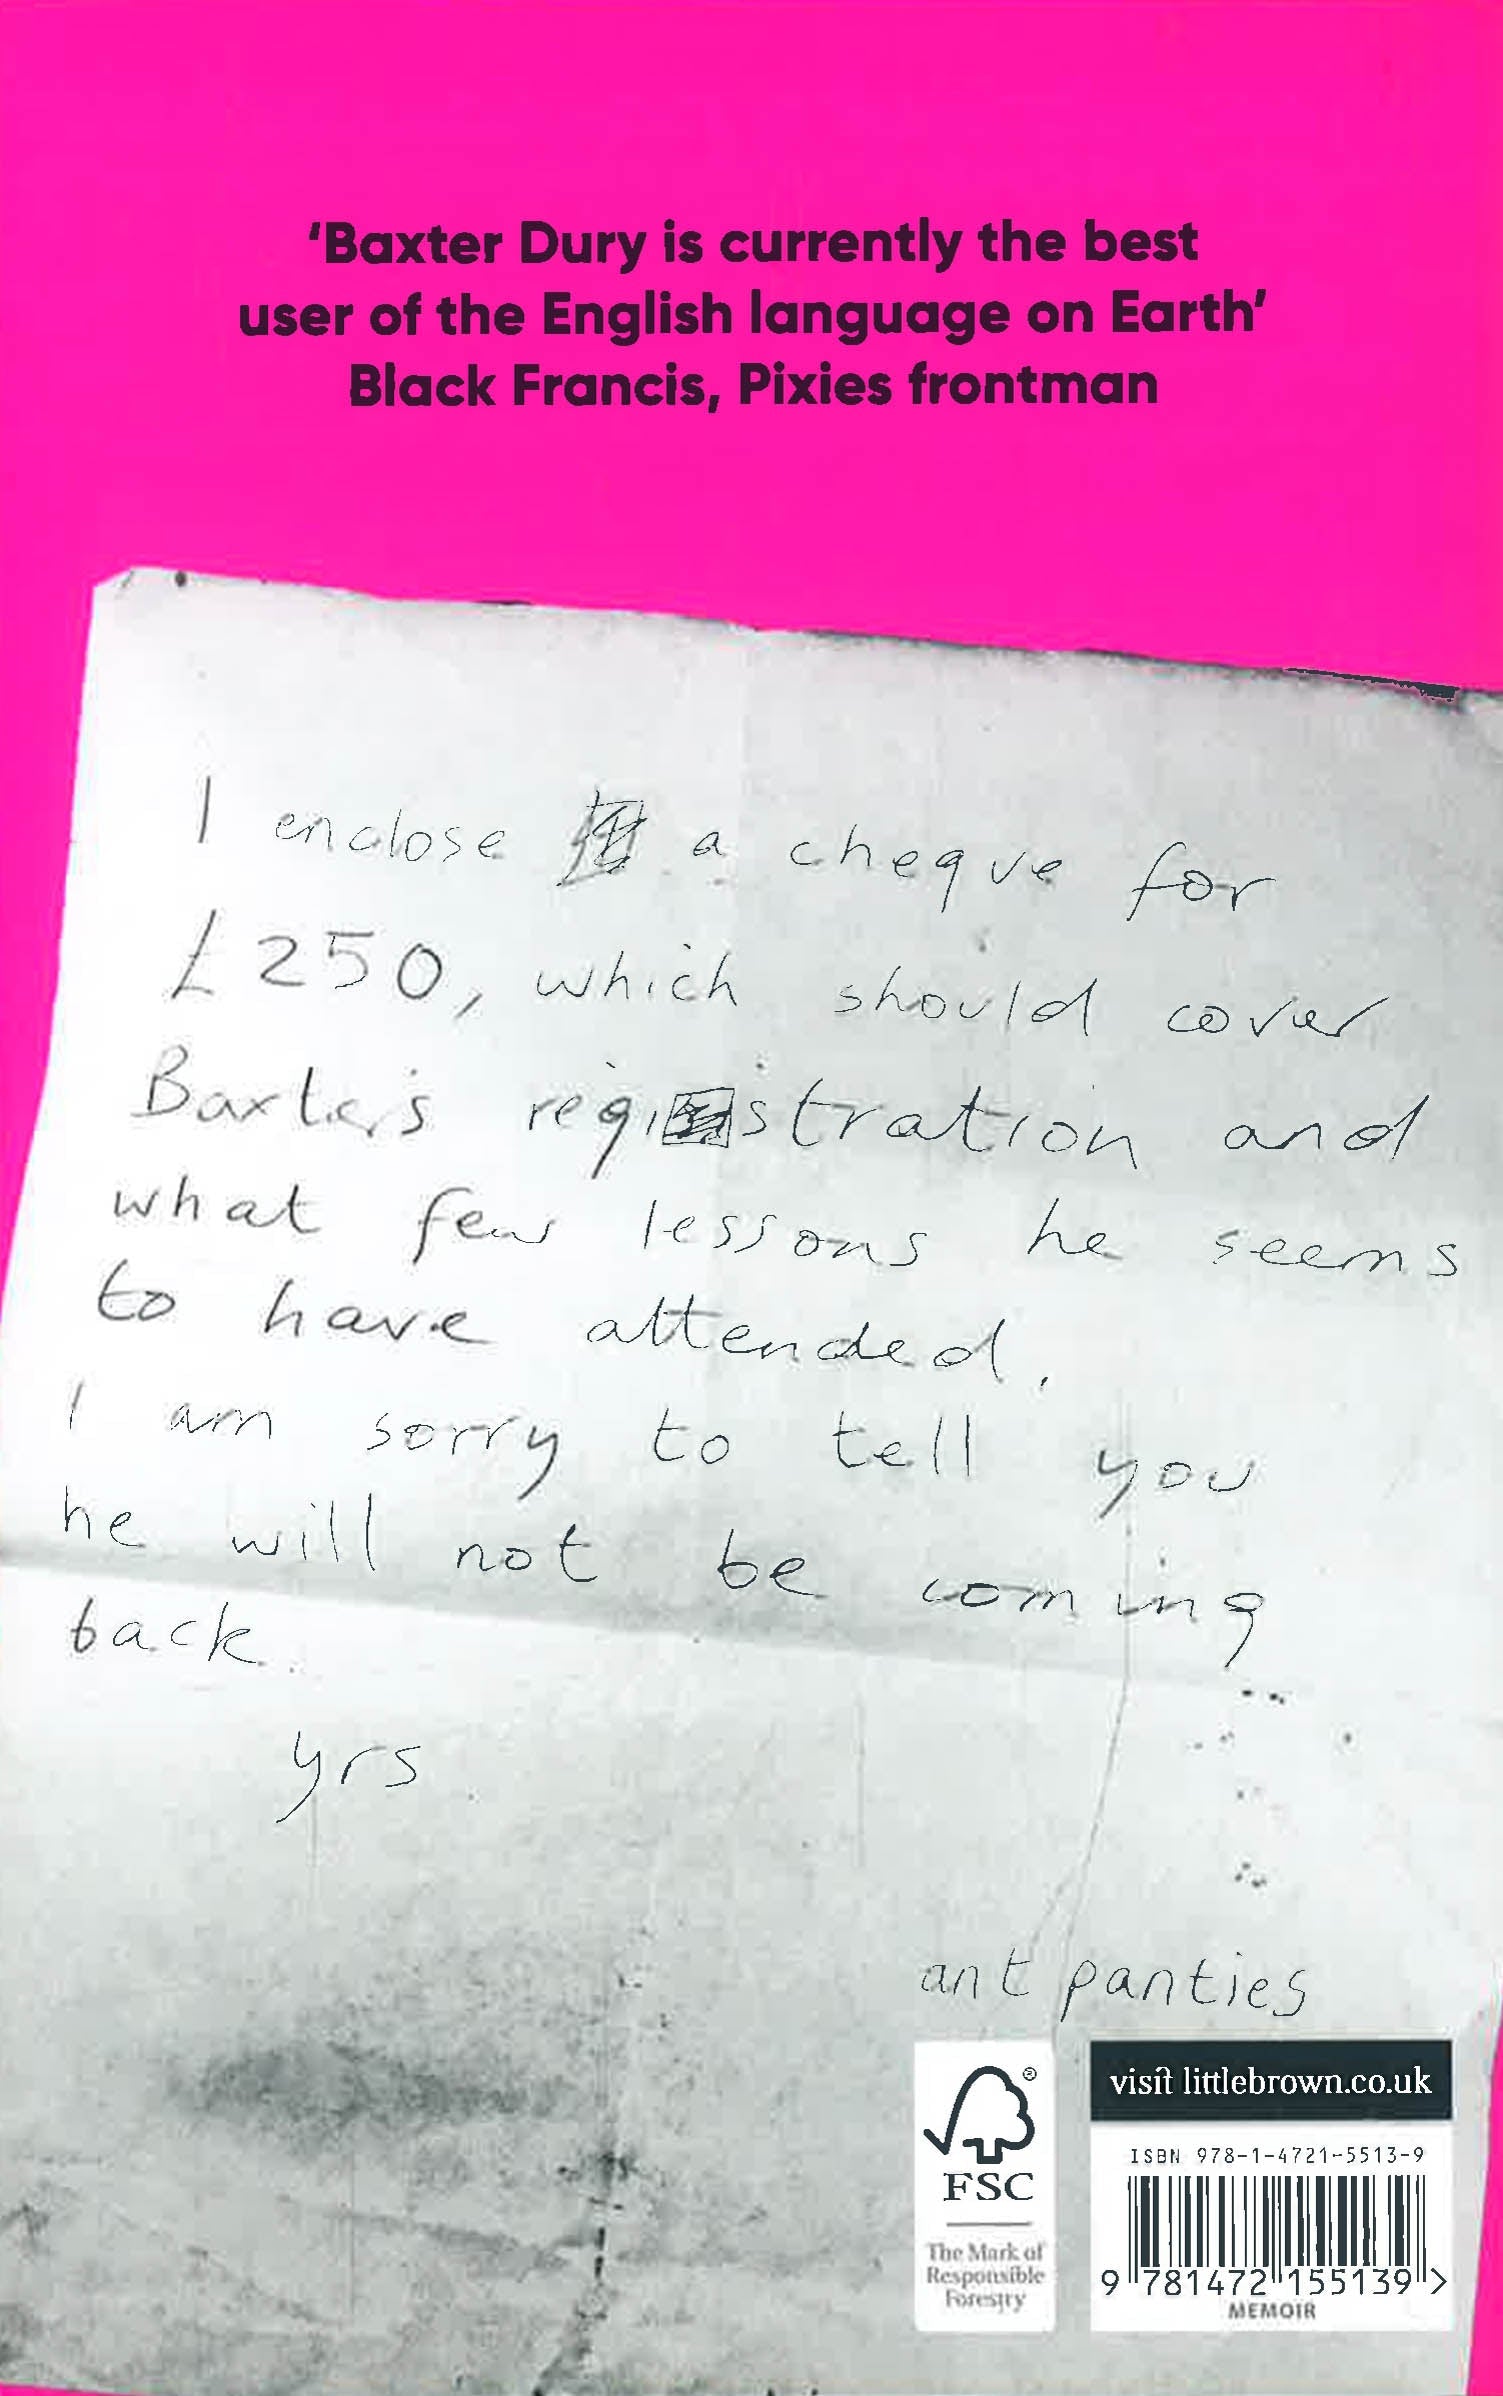 ‘Baxter Dury is currently the best
user of the English language on Earth’
Black Francis, Pixies frontman
I enclose a cheque for
£250, which should cover
Baxter's registration and
what few lessons he seems
to have attended.
I am sorry to tell you
he will not be coming
back.
yrs
ant panties
FSC
®
The Mark of
Responsible
Forestry
visit littlebrown.co.uk
ISBN 978-1-4721-5513-9
9 781472 155139 >
MEMOIR